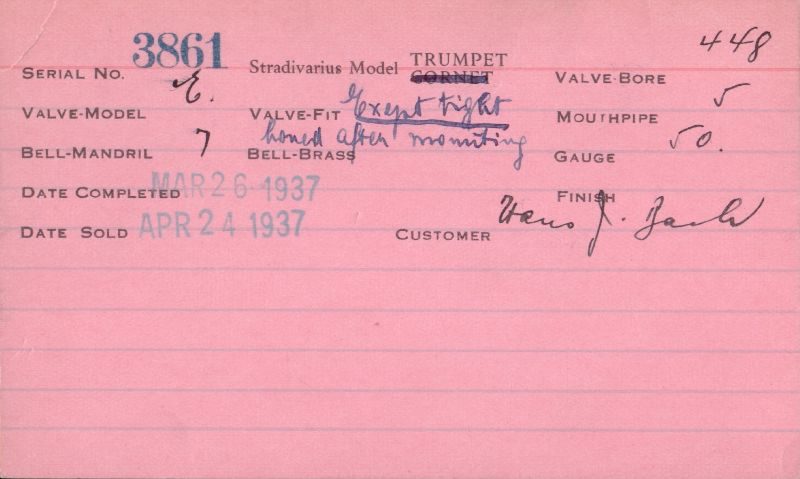 SERIAL No. 3861 Stradivarius Model TRUMPET CORNET VALVE-BORE 448
VALVE-MODEL E. VALVE-FIT Exept tight MOUTHPIPE 5
honed after mounting
BELL-MANDRIL 7 BELL-BRASS GAUGE 50.
DATE COMPLETED MAR 26 1937 FINISH
DATE SOLD APR 24 1937 CUSTOMER Hans J. Bach